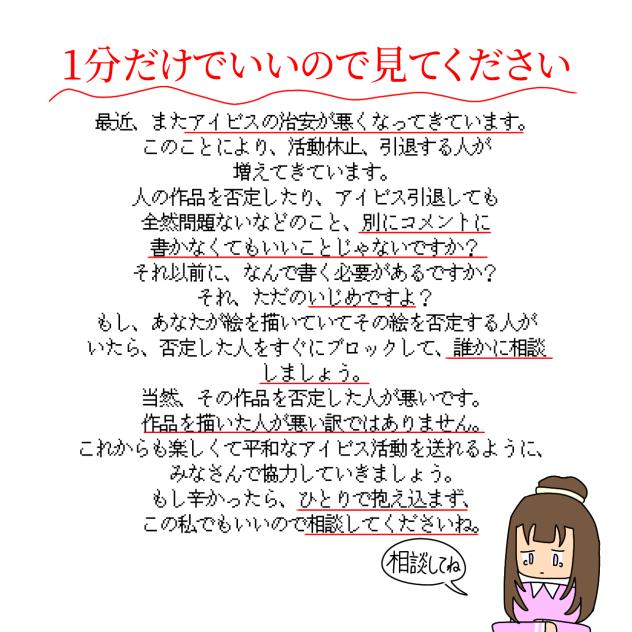 1分だけでいいので見てください
最近、またアイビスの治安が悪くなってきています。
このことにより、活動休止、引退する人が
増えてきています。
人の作品を否定したり、アイビス引退しても
全然問題ないなどのこと、別にコメントに
書かなくてもいいことじゃないですか？
それ以前に、なんで書く必要があるですか？
それ、ただのいじめですよ？
もし、あなたが絵を描いていてその絵を否定する人が
いたら、否定した人をすぐにブロックして、誰かに相談
しましょう。
当然、その作品を否定した人が悪いです。
作品を描いた人が悪い訳ではありません。
これからも楽しくて平和なアイビス活動を送れるように、
みなさんで協力していきましょう。
もし辛かったら、ひとりで抱え込まず、
この私でもいいので相談してくださいね。
相談してね